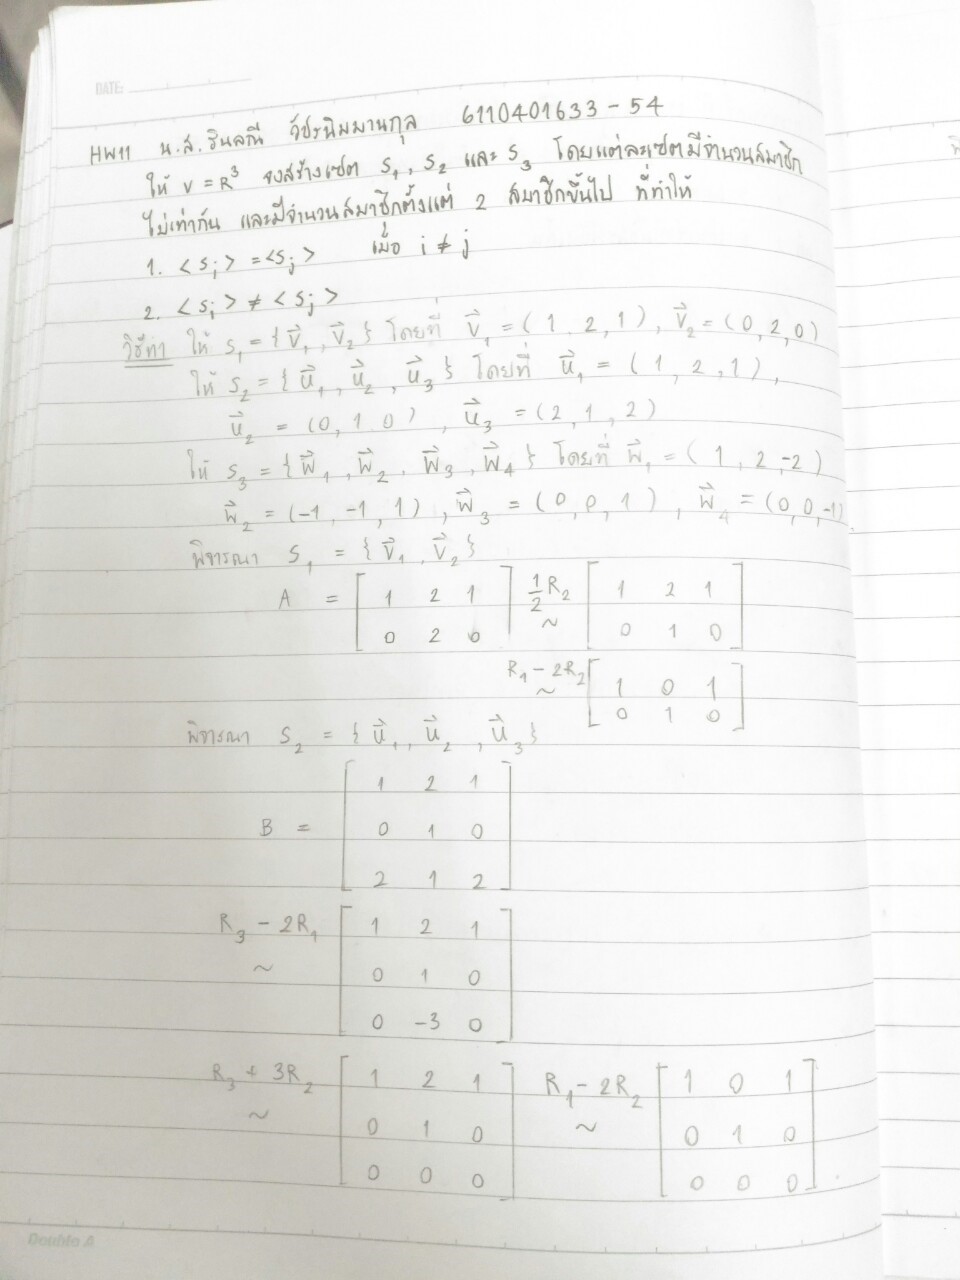 DATE:
HW11 น.ส. รินลณี วัชรนิมมานกุล 6110401633-54
ให้ V = R³ จงสร้างเซต S₁, S₂ และ S₃ โดยแต่ละเซตมีจำนวนสมาชิก
ไม่เท่ากัน และมีจำนวนสมาชิกตั้งแต่ 2 สมาชิกขึ้นไป ที่ทำให้
1. <Sᵢ> = <Sⱼ> เมื่อ i ≠ j
2. <Sᵢ> ≠ <Sⱼ>
วิธีทำ ให้ S₁ = { v⃗₁, v⃗₂ } โดยที่ v⃗₁ = (1, 2, 1), v⃗₂ = (0, 2, 0)
ให้ S₂ = { u⃗₁, u⃗₂, u⃗₃ } โดยที่ u⃗₁ = (1, 2, 1),
u⃗₂ = (0, 1 0), u⃗₃ = (2, 1, 2)
ให้ S₃ = { w⃗₁, w⃗₂, w⃗₃, w⃗₄ } โดยที่ w⃗₁ = (1, 2, -2)
w⃗₂ = (-1, -1, 1), w⃗₃ = (0, 0, 1), w⃗₄ = (0, 0, -1)
พิจารณา S₁ = { v⃗₁, v⃗₂ }
A = [ 1 2 1 ½R₂ [ 1 2 1
0 2 0 ] ~ 0 1 0 ]
R₁ - 2R₂ [ 1 0 1
~ 0 1 0 ]
พิจารณา S₂ = { u⃗₁, u⃗₂, u⃗₃ }
[ 1 2 1
B = 0 1 0
2 1 2 ]
R₃ - 2R₁ [ 1 2 1
~ 0 1 0
0 -3 0 ]
R₃ + 3R₂ [ 1 2 1 R₁ - 2R₂ [ 1 0 1
~ 0 1 0 ~ 0 1 0
0 0 0 ] 0 0 0 ]
Double A